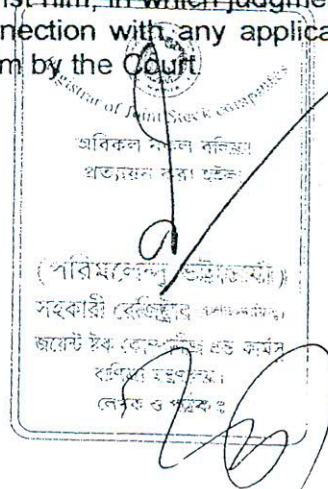 nst him, in which judgme
nnection with any applica
m by the Court
Registrar of Joint Stock Companies
অবিকল নকল বলিয়া
প্রত্যায়ন করা হইল।
(পরিমলেন্দু ভট্টাচার্য্য)
সহকারী রেজিস্ট্রার
জয়েন্ট ষ্টক কোম্পানীজ এন্ড ফার্মস
বাণিজ্য মন্ত্রণালয়।